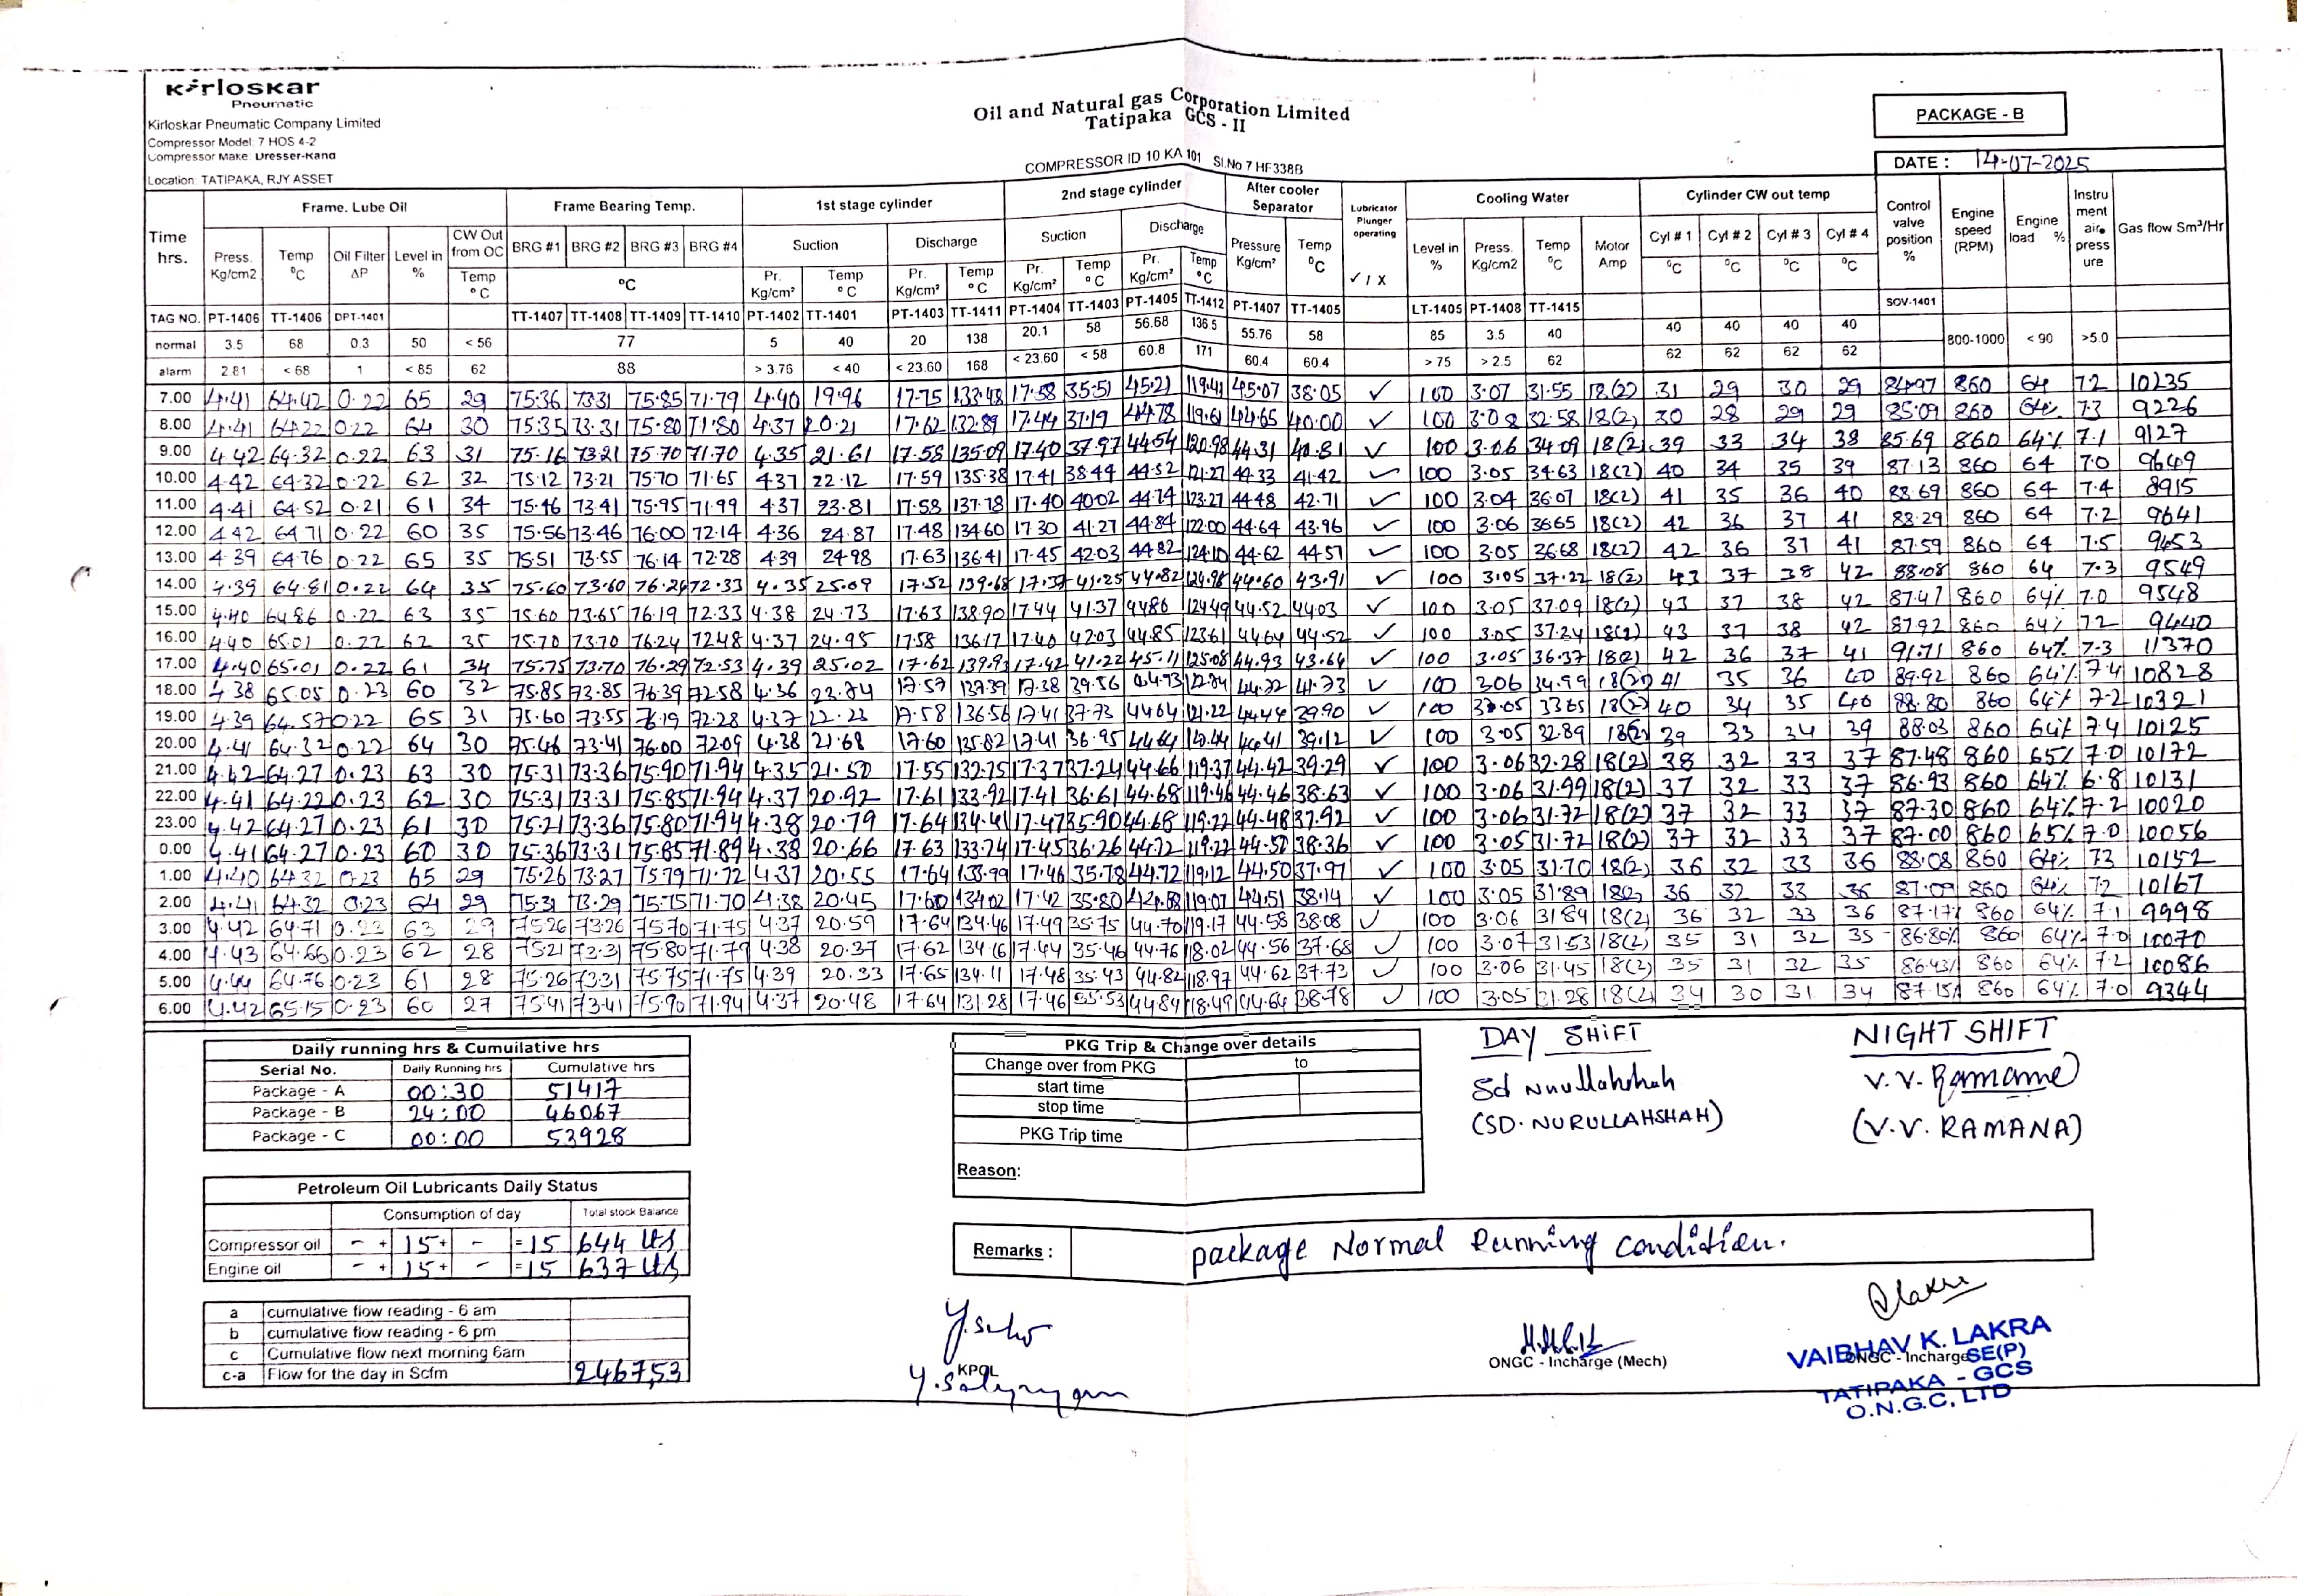 Kirloskar
Pneumatic
Kirloskar Pneumatic Company Limited
Compressor Model: 7 HOS 4-2
Compressor Make: Dresser-Rand
Location: TATIPAKA, RJY ASSET
Oil and Natural gas Corporation Limited
Tatipaka GCS - II
COMPRESSOR ID 10 KA 101 Sl.No 7 HF338B
PACKAGE - B
DATE : 14-07-2025
Time hrs. Frame. Lube Oil Frame Bearing Temp. 1st stage cylinder 2nd stage cylinder After cooler Separator Lubricator Plunger operating ✓ / X Cooling Water Cylinder CW out temp Control valve position % Engine speed (RPM) Engine load % Instru ment air press ure Gas flow Sm³/Hr
Press. Kg/cm2 Temp ºC Oil Filter ΔP Level in % CW Out from OC Temp º C BRG #1 BRG #2 BRG #3 BRG #4 ºC Suction Discharge Suction Discharge Pressure Kg/cm² Temp ºC Level in % Press. Kg/cm2 Temp ºC Motor Amp Cyl # 1 Cyl # 2 Cyl # 3 Cyl # 4
Pr. Kg/cm² Temp º C Pr. Kg/cm² Temp º C Pr. Kg/cm² Temp º C Pr. Kg/cm² Temp ºC ºC ºC ºC ºC
TAG NO. PT-1406 TT-1406 DPT-1401 TT-1407 TT-1408 TT-1409 TT-1410 PT-1402 TT-1401 PT-1403 TT-1411 PT-1404 TT-1403 PT-1405 TT-1412 PT-1407 TT-1405 LT-1405 PT-1408 TT-1415 SOV-1401
normal 3.5 68 0.3 50 < 56 77 5 40 20 138 20.1 58 56.68 136.5 55.76 58 85 3.5 40 40 40 40 40 800-1000 < 90 >5.0
alarm 2.81 < 68 1 < 85 62 88 > 3.76 < 40 < 23.60 168 < 23.60 < 58 60.8 171 60.4 60.4 > 75 > 2.5 62 62 62 62 62
7.00 4.41 64.42 0.22 65 29 75.36 73.31 75.85 71.79 4.40 19.96 17.75 133.48 17.58 35.51 45.21 119.41 45.07 38.05 ✓ 100 3.07 31.55 18(2) 31 29 30 29 84.97 860 64 7.2 10235
8.00 4.41 64.22 0.22 64 30 75.35 73.31 75.80 71.80 4.37 20.21 17.62 132.89 17.44 37.19 44.78 119.61 44.65 40.00 ✓ 100 3.08 32.58 18(2) 30 28 29 29 85.09 860 64% 7.3 9226
9.00 4.42 64.32 0.22 63 31 75.16 73.21 75.70 71.70 4.35 21.61 17.58 135.09 17.40 37.97 44.54 120.98 44.31 40.81 ✓ 100 3.06 34.09 18(2) 39 33 34 38 85.69 860 64% 7.1 9127
10.00 4.42 64.32 0.22 62 32 75.12 73.21 75.70 71.65 4.37 22.12 17.59 135.38 17.41 38.44 44.52 121.27 44.33 41.42 ✓ 100 3.05 34.63 18(2) 40 34 35 39 87.13 860 64 7.0 9649
11.00 4.41 64.52 0.21 61 34 75.46 73.41 75.95 71.99 4.37 23.81 17.58 137.78 17.40 40.02 44.74 123.27 44.48 42.71 ✓ 100 3.04 36.07 18(2) 41 35 36 40 88.69 860 64 7.4 8915
12.00 4.42 64.71 0.22 60 35 75.56 73.46 76.00 72.14 4.36 24.87 17.48 134.60 17.30 41.27 44.84 122.00 44.64 43.96 ✓ 100 3.06 36.65 18(2) 42 36 37 41 88.29 860 64 7.2 9641
13.00 4.39 64.76 0.22 65 35 75.51 73.55 76.14 72.28 4.39 24.98 17.63 136.41 17.45 42.03 44.82 124.10 44.62 44.57 ✓ 100 3.05 36.68 18(2) 42 36 37 41 87.59 860 64 7.5 9453
14.00 4.39 64.81 0.22 64 35 75.60 73.60 76.24 72.33 4.35 25.09 17.52 139.68 17.37 41.25 44.82 124.98 44.60 43.91 ✓ 100 3.05 37.22 18(2) 43 37 38 42 88.08 860 64 7.3 9549
15.00 4.40 64.86 0.22 63 35 75.60 73.65 76.19 72.33 4.38 24.73 17.63 138.90 17.44 41.37 44.86 124.49 44.52 44.03 ✓ 100 3.05 37.09 18(2) 43 37 38 42 87.47 860 64% 7.0 9548
16.00 4.40 65.01 0.22 62 35 75.70 73.70 76.24 72.48 4.37 24.95 17.58 136.17 17.40 42.03 44.85 123.61 44.64 44.52 ✓ 100 3.05 37.24 18(2) 43 37 38 42 87.92 860 64% 7.2 9440
17.00 4.40 65.01 0.22 61 34 75.75 73.70 76.29 72.53 4.39 25.02 17.62 139.93 17.42 41.22 45.11 125.08 44.93 43.64 ✓ 100 3.05 36.37 18(2) 42 36 37 41 91.71 860 64% 7.3 11370
18.00 4.38 65.05 0.23 60 32 75.85 73.85 76.39 72.58 4.36 23.74 17.57 137.39 17.38 39.56 44.93 44.72 41.73 ✓ 100 3.06 34.99 18(2) 41 35 36 40 89.92 860 64% 7.4 10828
19.00 4.39 64.57 0.22 65 31 75.60 73.55 76.19 72.28 4.37 22.23 17.58 136.56 17.41 37.73 44.64 121.22 44.44 39.90 ✓ 100 3.05 33.65 18(2) 40 34 35 40 88.80 860 64% 7.2 10321
20.00 4.41 64.32 0.22 64 30 75.46 73.41 76.00 72.09 4.38 21.68 17.60 135.82 17.41 36.95 44.64 44.41 39.12 ✓ 100 3.05 32.89 18(2) 39 33 34 39 88.03 860 64% 7.4 10125
21.00 4.42 64.27 0.23 63 30 75.31 73.36 75.90 71.94 4.35 21.50 17.55 132.75 17.37 37.24 44.66 119.37 44.42 39.29 ✓ 100 3.06 32.28 18(2) 38 32 33 37 87.48 860 65% 7.0 10172
22.00 4.41 64.22 0.23 62 30 75.31 73.31 75.85 71.94 4.37 20.92 17.61 133.92 17.41 36.61 44.68 119.46 44.46 38.63 ✓ 100 3.06 31.99 18(2) 37 32 33 37 86.93 860 64% 6.8 10131
23.00 4.42 64.27 0.23 61 30 75.21 73.36 75.80 71.94 4.38 20.79 17.64 134.41 17.47 35.90 44.68 119.22 44.48 37.92 ✓ 100 3.06 31.72 18(2) 37 32 33 37 87.30 860 64% 7.2 10020
0.00 4.41 64.27 0.23 60 30 75.36 73.31 75.85 71.89 4.38 20.66 17.63 133.74 17.45 36.26 44.72 119.22 44.50 38.36 ✓ 100 3.05 31.72 18(2) 37 32 33 37 87.00 860 65% 7.0 10056
1.00 4.40 64.32 0.23 65 29 75.26 73.27 75.79 71.72 4.37 20.55 17.64 133.99 17.46 35.78 44.72 119.12 44.50 37.97 ✓ 100 3.05 31.70 18(2) 36 32 33 36 88.08 860 64% 7.3 10152
2.00 4.41 64.32 0.23 64 29 75.31 73.29 75.75 71.70 4.38 20.45 17.60 134.02 17.42 35.80 119.07 44.51 38.14 ✓ 100 3.05 31.89 18(2) 36 32 33 36 87.09 860 64% 7.2 10167
3.00 4.42 64.71 0.23 63 29 75.26 73.26 75.70 71.75 4.37 20.59 17.64 134.46 17.49 35.75 44.70 119.17 44.58 38.08 ✓ 100 3.06 31.84 18(2) 36 32 33 36 87.17% 860 64% 7.1 9998
4.00 4.43 64.66 0.23 62 28 75.21 73.31 75.80 71.79 4.38 20.37 17.62 134.16 17.44 35.46 44.76 118.02 44.56 37.68 ✓ 100 3.07 31.53 18(2) 35 31 32 35 86.80% 860 64% 7.0 10070
5.00 4.44 64.76 0.23 61 28 75.26 73.31 75.75 71.75 4.39 20.33 17.65 134.11 17.48 35.43 44.82 118.97 44.62 37.73 ✓ 100 3.06 31.45 18(2) 35 31 32 35 86.43% 860 64% 7.2 10086
6.00 4.42 65.15 0.23 60 27 75.41 73.41 75.90 71.94 4.37 20.48 17.64 131.28 17.46 35.53 44.84 118.49 44.64 38.78 ✓ 100 3.05 31.28 18(2) 34 30 31 34 87.15% 860 64% 7.0 9344
Daily running hrs & Cumuilative hrs
Serial No. Daily Running hrs Cumulative hrs
Package - A 00:30 51417
Package - B 24:00 46067
Package - C 00:00 53928
PKG Trip & Change over details
Change over from PKG to
start time
stop time
PKG Trip time
Reason:
DAY SHIFT
Sd Nurullahshah
(SD. NURULLAHSHAH)
NIGHT SHIFT
V.V. Ramana
(V.V. RAMANA)
Petroleum Oil Lubricants Daily Status
Consumption of day Total stock Balance
Compressor oil - + 15 + - = 15 644 Lts
Engine oil - + 15 + - = 15 637 Lts
Remarks : package Normal Running condition.
a cumulative flow reading - 6 am
b cumulative flow reading - 6 pm
c Cumulative flow next morning 6am
c-a Flow for the day in Scfm 246753
KPCL
ONGC - Incharge (Mech)
ONGC - Incharge
VAIBHAV K. LAKRA
SE(P)
TATIPAKA - GCS
O.N.G.C, LTD